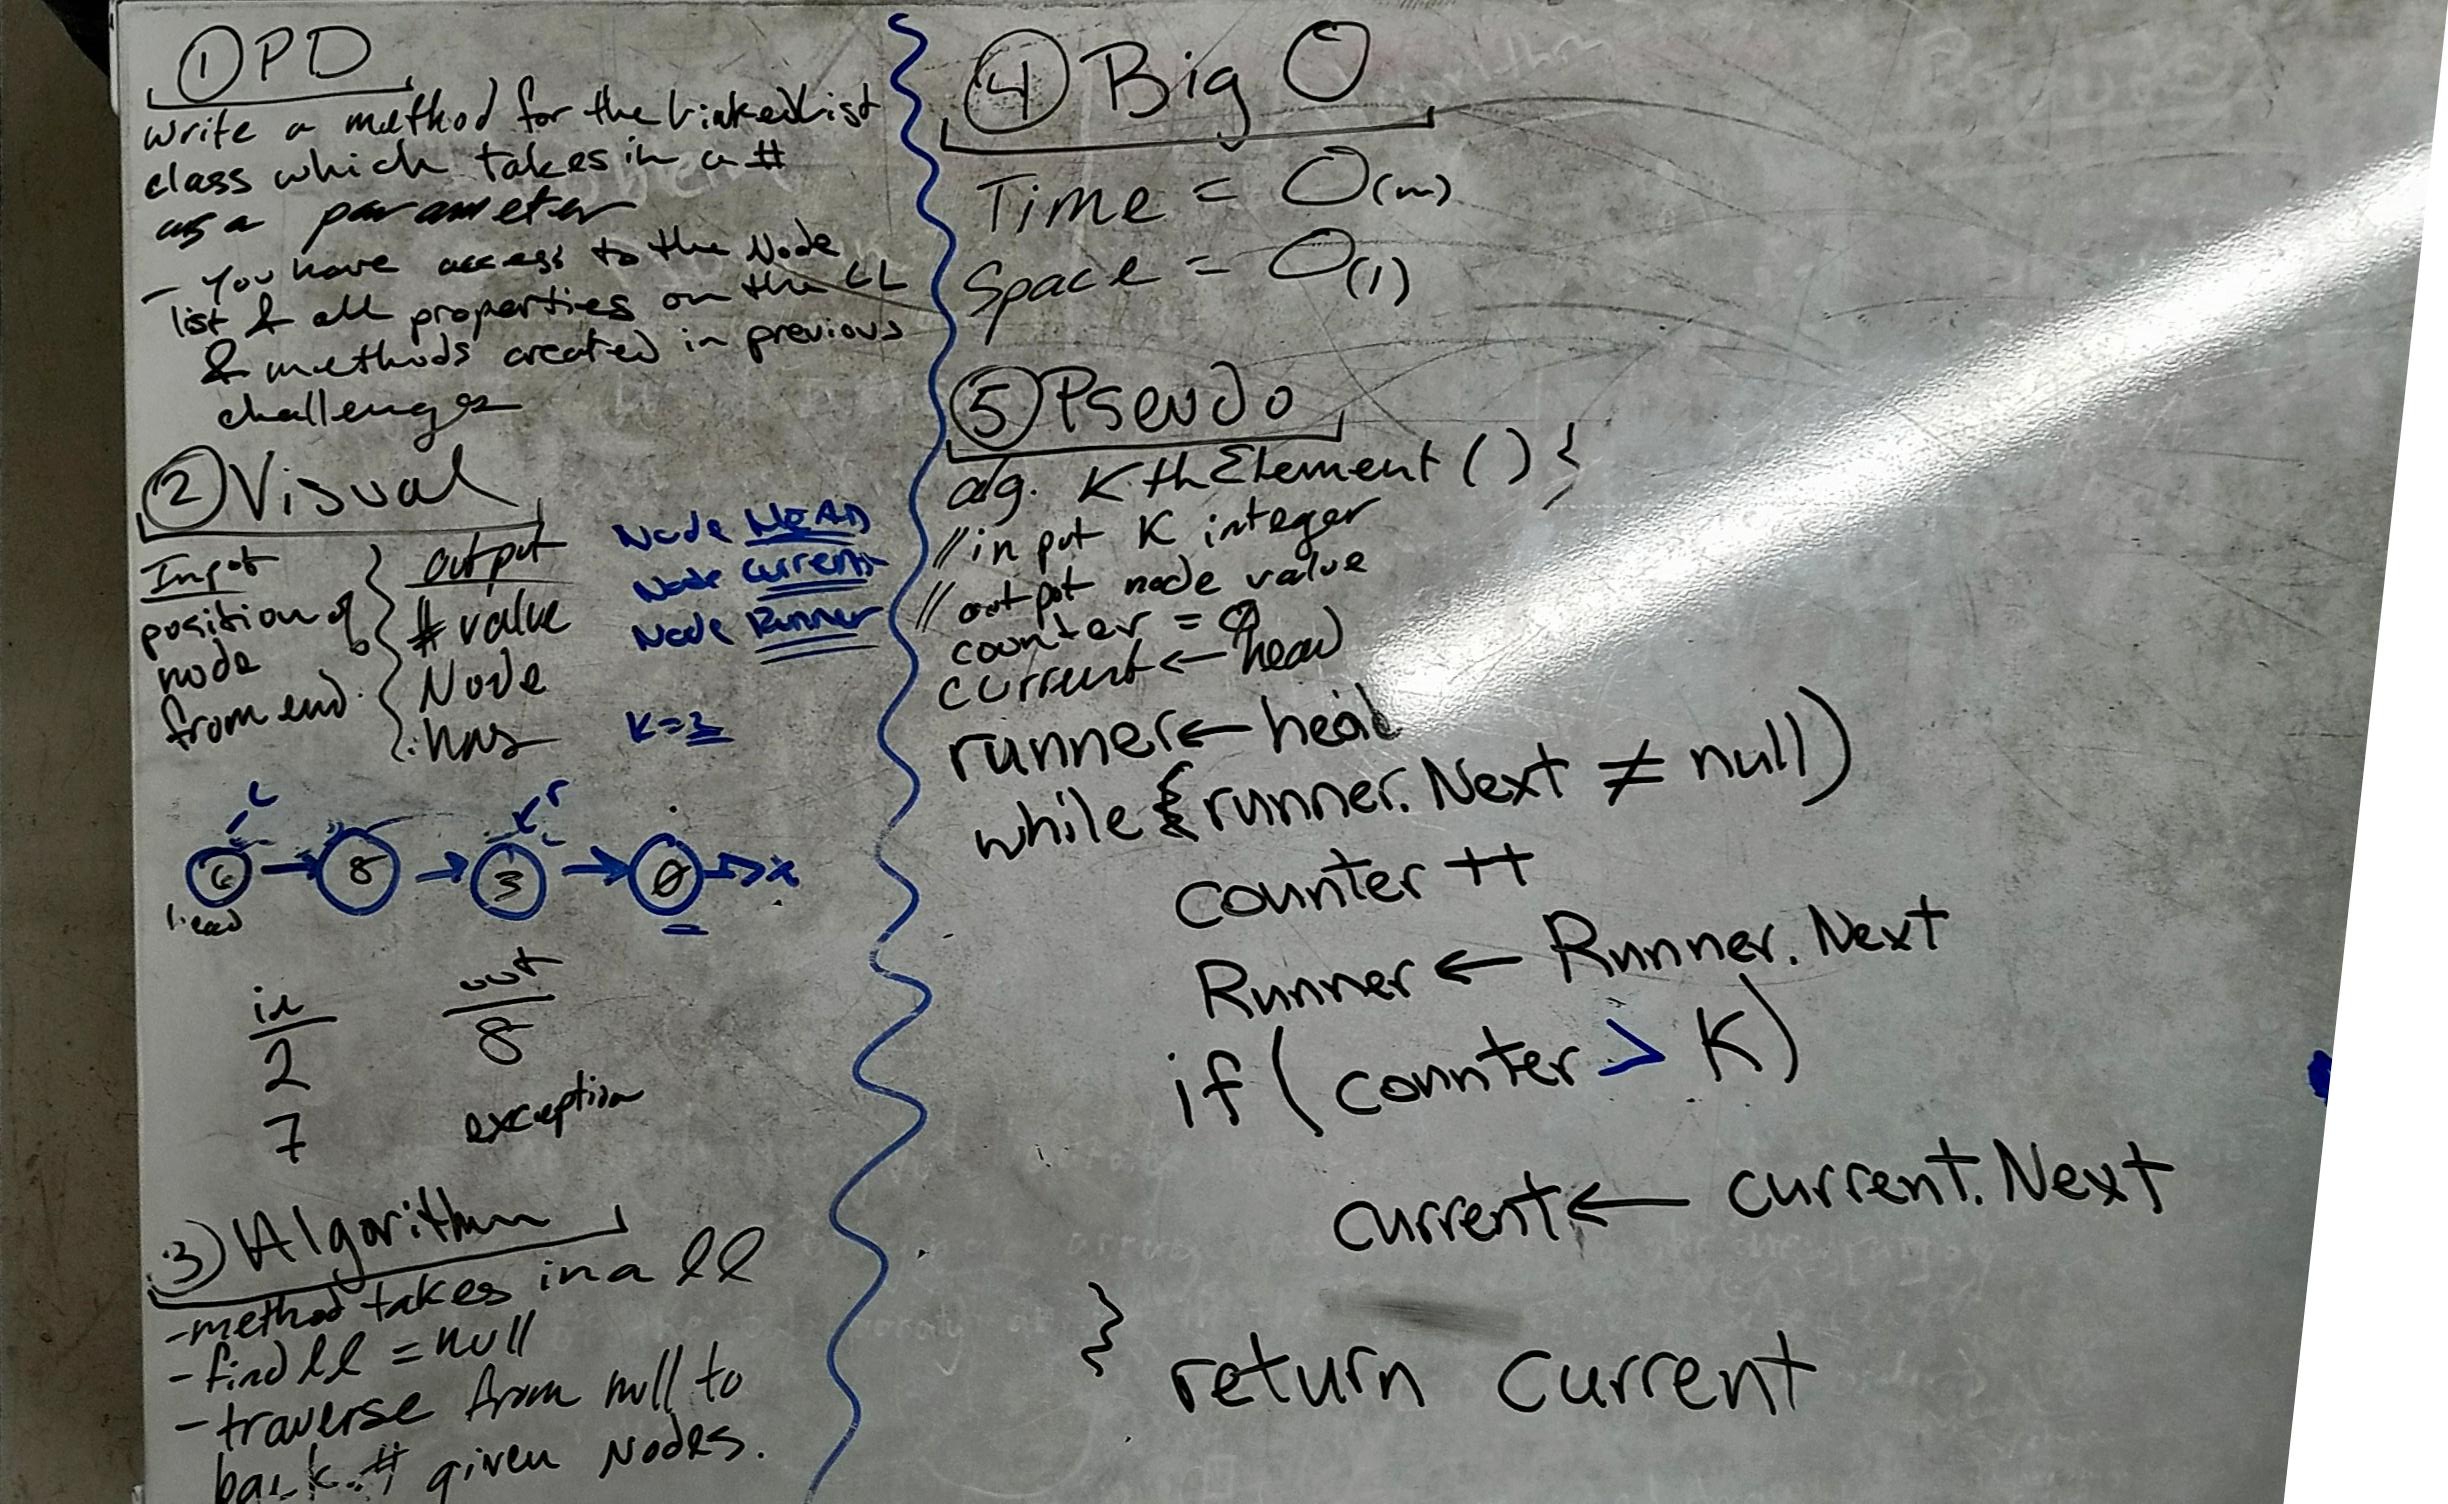 ① PD
write a method for the LinkedList
class which takes in a #
as a parameter
- You have access to the Node
list & all properties on the LL
& methods created in previous
challenges
② Visual
Input
position of
node
from end
output
# value
Node
has
Node HEAD
Node Current
Node Runner
K=2
c
r
c
6 → 8 → 3 → 0 → x
head
in out
2 8
7 exception
3) Algorithm
- method takes in a ll
- find ll = null
- traverse from null to
back # given Nodes.
④ Big O
Time = O(n)
Space = O(1)
⑤ Pseudo
alg. KthElement () {
// input K integer
// output node value
counter = 0
current ← head
runner ← head
while (runner.Next ≠ null)
counter ++
Runner ← Runner.Next
if ( counter > K)
current ← current.Next
}
return current